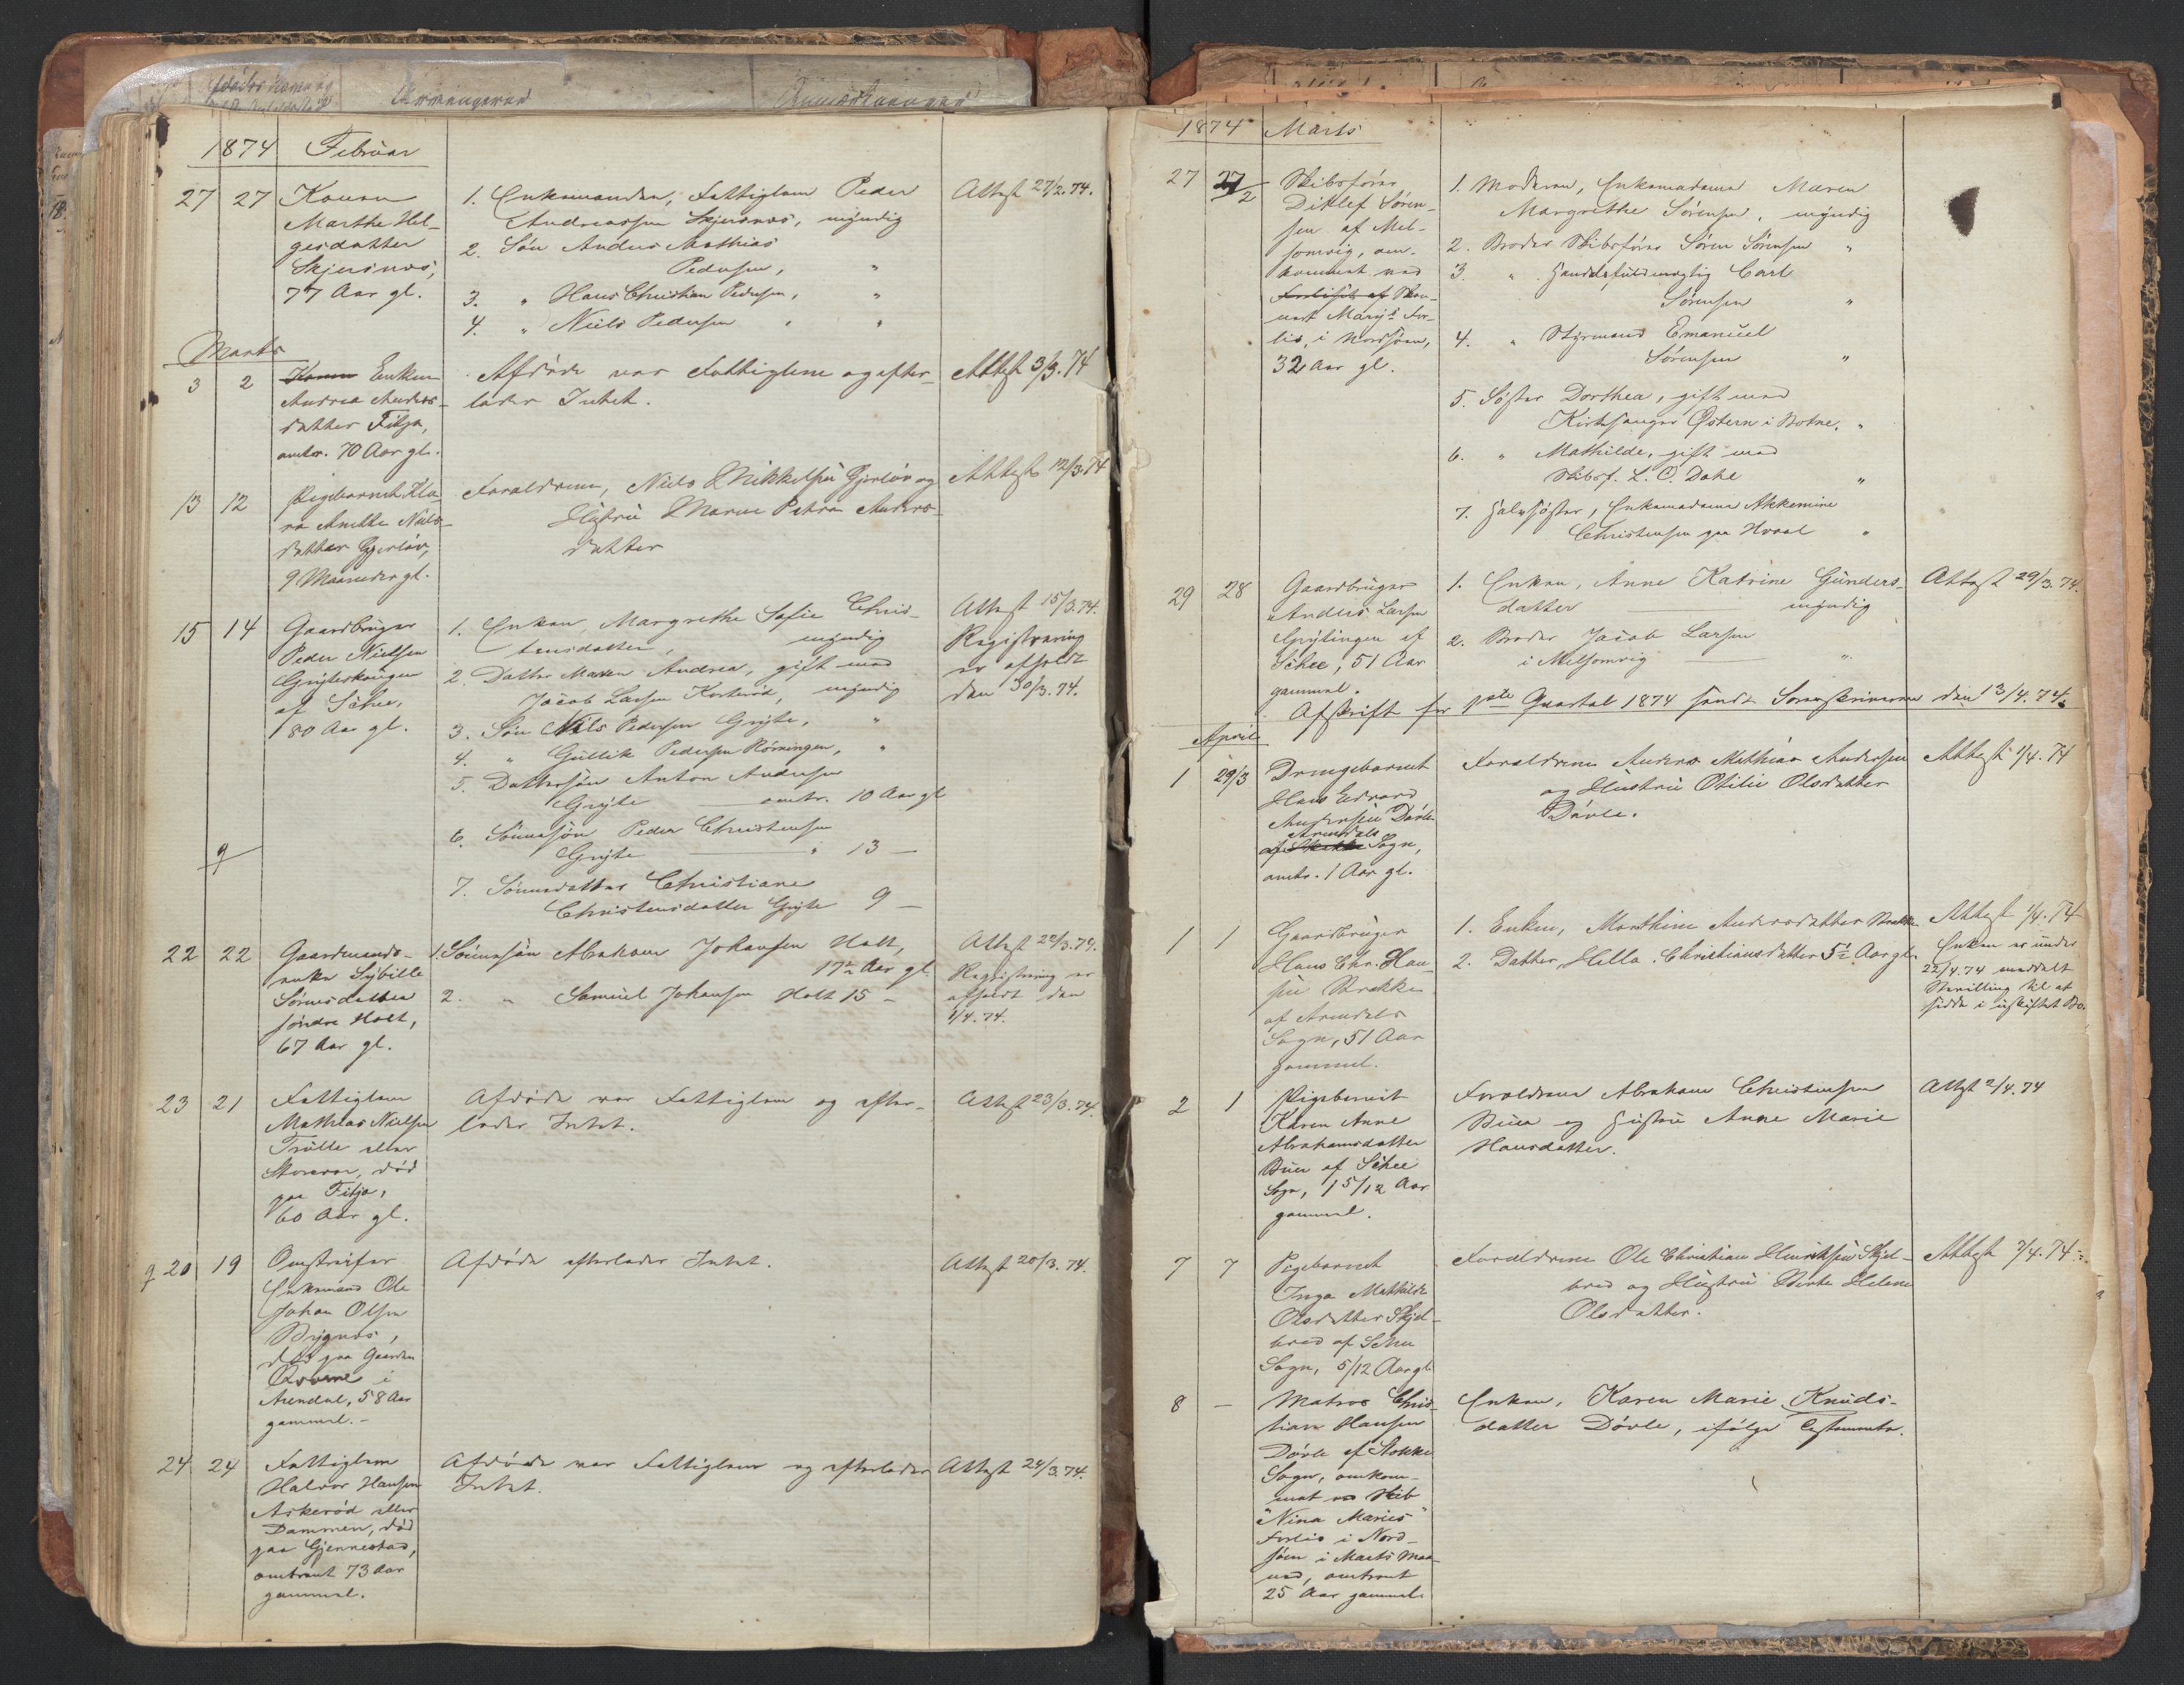 1874 Februar
27 27 Konen
Marthe Hel-
gesdatter
Skjersnæs,
77 Aar gl.
1. Enkemanden, Fattiglem Peder
Andreassen Skjersnæs, myndig
2. Søn Anders Mathias
Pedersen, "
3. " Hans Christian Pedersen, "
4. " Niels Pedersen " "
Attest 27/2.74.
Marts
3 2 Konen Enken
Andrea Anders-
datter Fitja,
omtr. 70 Aar gl.
Afdøde var Fattiglem og efter-
lader Intet.
Attest 3/3.74
13 12 Pigebarnet Kla-
ra Anette Niels-
datter Gjerløv,
9 Maaneder gl.
Forældrene, Niels Mikkelsen Gjerløv og
Hustru Maren Petra Anders-
datter
Attest 12/3.74
15 14 Gaardbruger
Peder Nielsen
Gryteskougen
af Sæhee,
80 Aar gl.
1. Enken, Margrethe Sofie Chris-
tensdatter, myndig
2. Datter Maren Andrea, gift med
Jacob Larsen Korterød, myndig
3. Søn Niels Pedersen Gryte, "
4. " Gullik Pedersen Rørningen, "
5. Dattersøn Anton Andersen
Gryte omtr. 10 Aar gl
6. Sønnesøn Peder Christensen
Gryte " 13 —
7. Sønnedatter Christiane
Christensdatter Gryte 9 —
Attest 15/3.74.
Registrering
er afholdt
den 30/3.74.
22 22 Gaardmands-
enke Sybille
Sørensdatter
søndre Holt,
67 Aar gl.
1. Sønnesøn Abraham Johansen Holt,
17½ Aar gl.
2. " Samuel Johansen Holt 15 —
Attest 22/3.74.
Registrering er
afholdt den
1/4.74.
23 21 Fattiglem
Mathias Nielsen
Trulle eller
Storevar, død
paa Fitja,
60 Aar gl.
Afdøde var Fattiglem og efter-
lader Intet.
Attest 23/3.74.
20 19 Omstreifer
Enkemand Ole
Johan Olsen
Bygnes,
død paa Gaarden
Qværne i
Arendal, 58 Aar
gammel. -
Afdøde efterlader Intet.
Attest 20/3.74.
24 24 Fattiglem
Halvor Hansen
Askerød eller
Dammen, død
paa Gjennestad,
omtrent 73 Aar
gammel.
Afdøde var Fattiglem og efterlader
Intet.
Attest 24/3.74.
1874 Marts
27 27/2 Skibsfører
Ditlef Søren-
sen af Mel-
somvig, om-
kommet ved
Forliset af Skon-
nert Mary's For-
lis, i Nordsøen,
32 Aar gl.
1. Moderen, Enkemadame Maren
Margrethe Sørensen, myndig
2. Broder Skibsfører Søren Sørensen "
3. " Handelsfuldmægtig Carl
Sørensen "
4. " Styrmand Emanuel
Sørensen "
5. Søster Dorthea, gift med
Kirkesanger Østern i Botne, "
6. " Mathilde, gift med
Skibsf. L. C. Dahl "
7. Halvsøster, Enkemadame Akkemine
Christensen paa Hvaal "
29 28 Gaardbruger
Anders Larsen
Grytingen af
Sæhee, 51 Aar
gammel.
1. Enken, Anne Katrine Gunders-
datter myndig
2. Broder Jacob Larsen
i Melsomvig — "
Attest 29/3.74.
Afskrift for 1ste Quartal 1874 sendt Sorenskriveren den 13/4.74.
April
1 29/3 Drengebarnet
Hans Edvard
Andersen Døvle
Arendals
af Stokke Sogn,
omtr. 1 Aar gl.
Forældrene Anders Mathias Andersen
og Hustru Otilie Olsdatter
Døvle.
Attest 1/4.74
1 1 Gaardbruger
Hans Chr. Han-
sen Brække
af Arendals
Sogn, 51 Aar
gammel.
1. Enken, Marthine Andersdatter Brække
2. Datter, Hella Christiansdatter 5½ Aar gl.
Attest 1/4.74
Enken er under
22/4.74 meddelt
Bevilling til at
sidde i uskiftet Bo.
2 1 Pigebarnet
Karen Anne
Abrahamsdatter
Buer af Sæhee
Sogn, 1 5/12 Aar
gammel.
Forældrene Abraham Christensen
Buer og Hustru Anne Marie
Hansdatter.
Attest 2/4.74
7 7 Pigebarnet
Inga Mathilde
Olsdatter Skjel-
bred af Sæhee
Sogn, 5/12 Aar gl
Forældrene Ole Christian Henriksen Skjel-
bred og Hustru Berte Helene
Olsdatter.
Attest 7/4.74.
8 — Matros Chris-
tian Hansen
Døvle af Stokke
Sogn, omkom-
met ved Skib
"Nina Maries"
Forlis i Nord-
søen i Marts Maa-
ned, omtrent
25 Aar gammel
Enken, Karen Marie Knuds-
datter Døvle, ifølge Testamente.